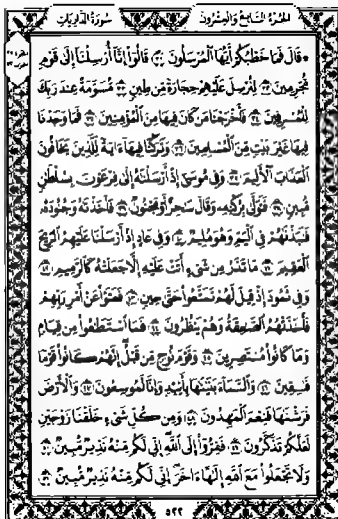 الجزء السابع والعشرون سورة الذاريات
۞ قال فما خطبكم أيها المرسلون ٣١ قالوا إنا أرسلنا إلى قوم
مجرمين ٣٢ لنرسل عليهم حجارة من طين ٣٣ مسومة عند ربك
للمسرفين ٣٤ فأخرجنا من كان فيها من المؤمنين ٣٥ فما وجدنا
فيها غير بيت من المسلمين ٣٦ وتركنا فيها ءاية للذين يخافون
العذاب الأليم ٣٧ وفي موسى إذ أرسلنه إلى فرعون بسلطن
مبين ٣٨ فتولى بركنه وقال سحر أو مجنون ٣٩ فأخذنه وجنوده
فنبذنهم في اليم وهو مليم ٤٠ وفي عاد إذ أرسلنا عليهم الريح
العقيم ٤١ ما تذر من شيء أتت عليه إلا جعلته كالرميم ٤٢
وفي ثمود إذ قيل لهم تمتعوا حتى حين ٤٣ فعتوا عن أمر ربهم
فأخذتهم الصعقة وهم ينظرون ٤٤ فما استطعوا من قيام
وما كانوا منتصرين ٤٥ وقوم نوح من قبل إنهم كانوا قوما
فسقين ٤٦ والسماء بنينها بأييد وإنا لموسعون ٤٧ والأرض
فرشنها فنعم المهدون ٤٨ ومن كل شيء خلقنا زوجين
لعلكم تذكرون ٤٩ ففروا إلى الله إني لكم منه نذير مبين ٥٠
ولا تجعلوا مع الله إلها ءاخر إني لكم منه نذير مبين ٥١
٥٢٢